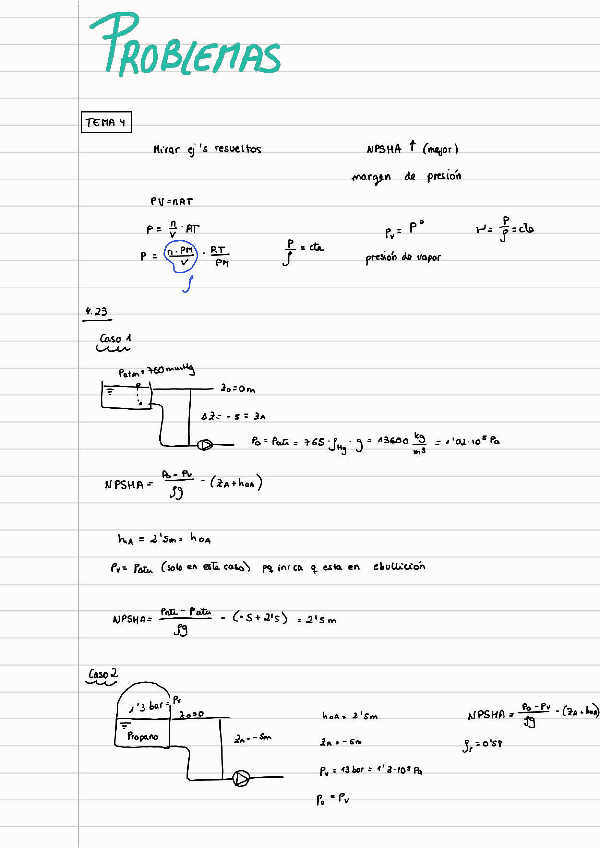 PROBLEMAS
TEMA 4
Mirar ej's resueltos
NPSHA ↑ (mejor)
margen de presión
PV = nRT
P = n/V · RT
P = n·PM/V · RT/PM
ρ
P/ρ = cte
Pv = P°
presión de vapor
r = P/ρ = cte
4.23
Caso 1
Patm = 760 mmHg
z0 = 0 m
ΔZ = -5 = ZA
P0 = Patm = 765 · ρHg · g = 13600 kg/m3 = 1'02·10^5 Pa
NPSHA = P0 - Pv / ρg - (ZA + h0A)
hA = 2'5m = h0A
Pv = Patm (solo en este caso) pq inica q esta en ebullición
NPSHA = Patm - Patm / ρg - (-5 + 2'5) = 2'5 m
Caso 2
1'3 bar = Pv
z0 = 0
Propano
ZA = -5m
h0A = 2'5m
ZA = -5m
Pv = 13 bar = 1'3·10^5 Pa
P0 = Pv
NPSHA = P0 - Pv / ρg - (ZA + h0A)
ρr = 0'58